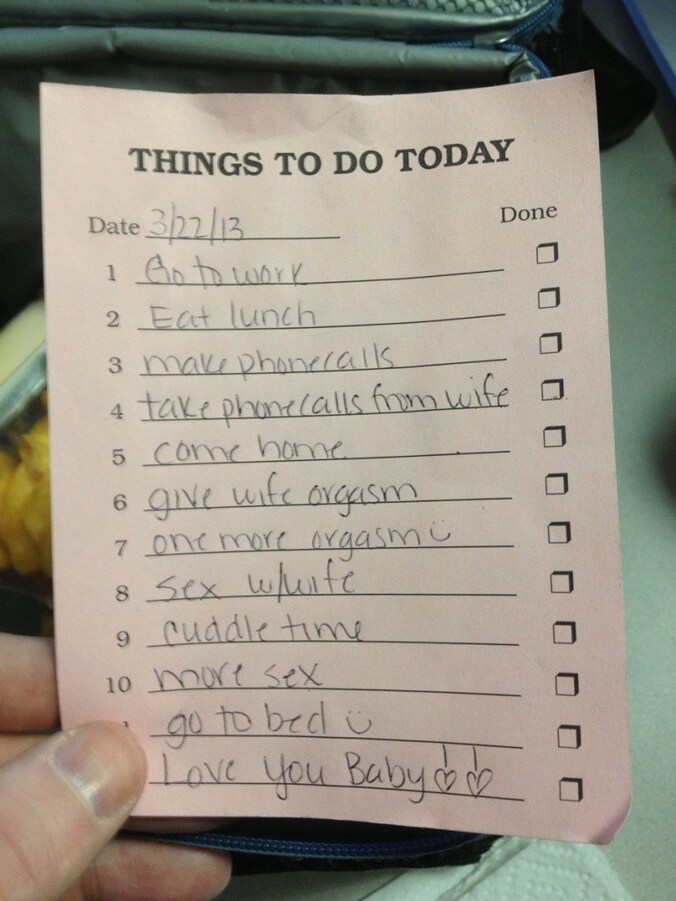 THINGS TO DO TODAY
Date 3/22/13 Done
1 Go to work
2 Eat lunch
3 make phonecalls
4 take phonecalls from wife
5 come home
6 give wife orgasm
7 one more orgasm
8 sex w/wife
9 cuddle time
10 more sex
go to bed
Love You Baby